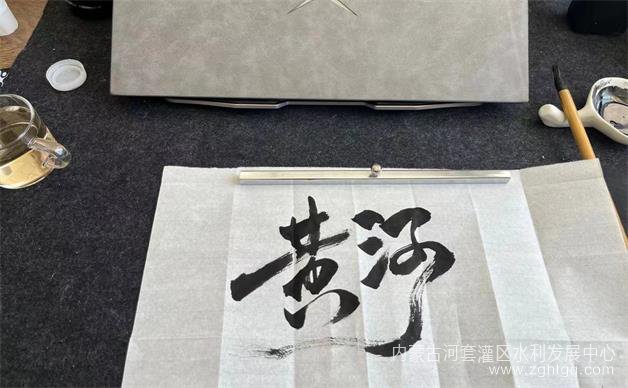 黄河
内蒙古河套灌区水利发展中心
www.zghtgq.com